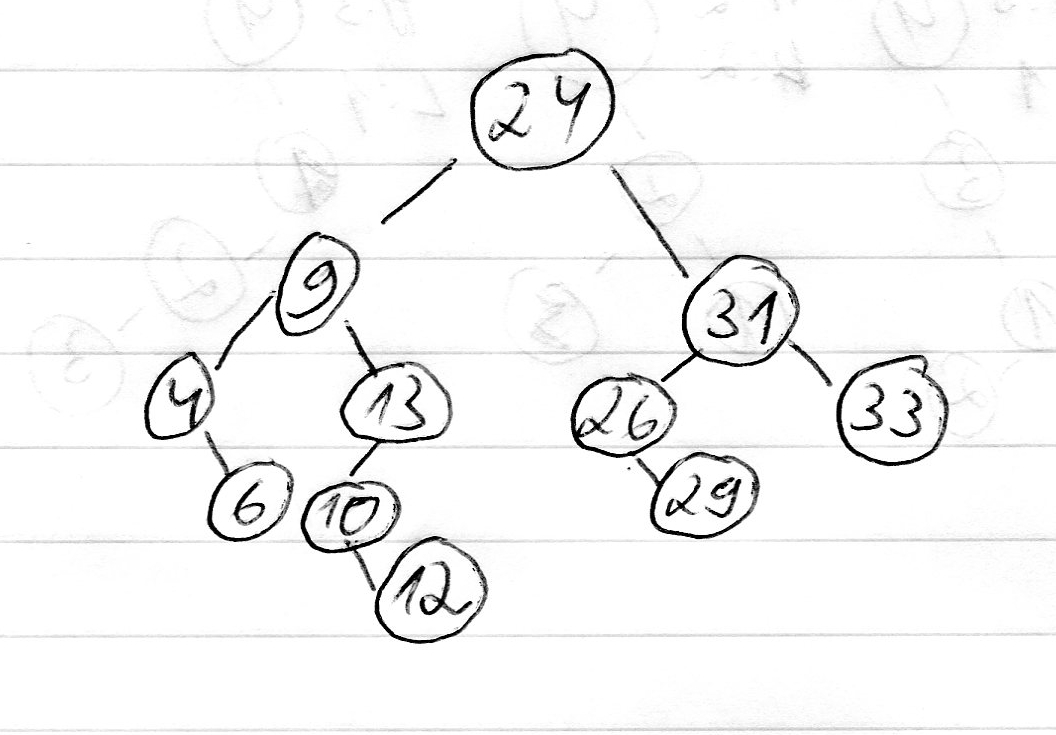 24
9
31
4
13
26
33
6
10
29
12